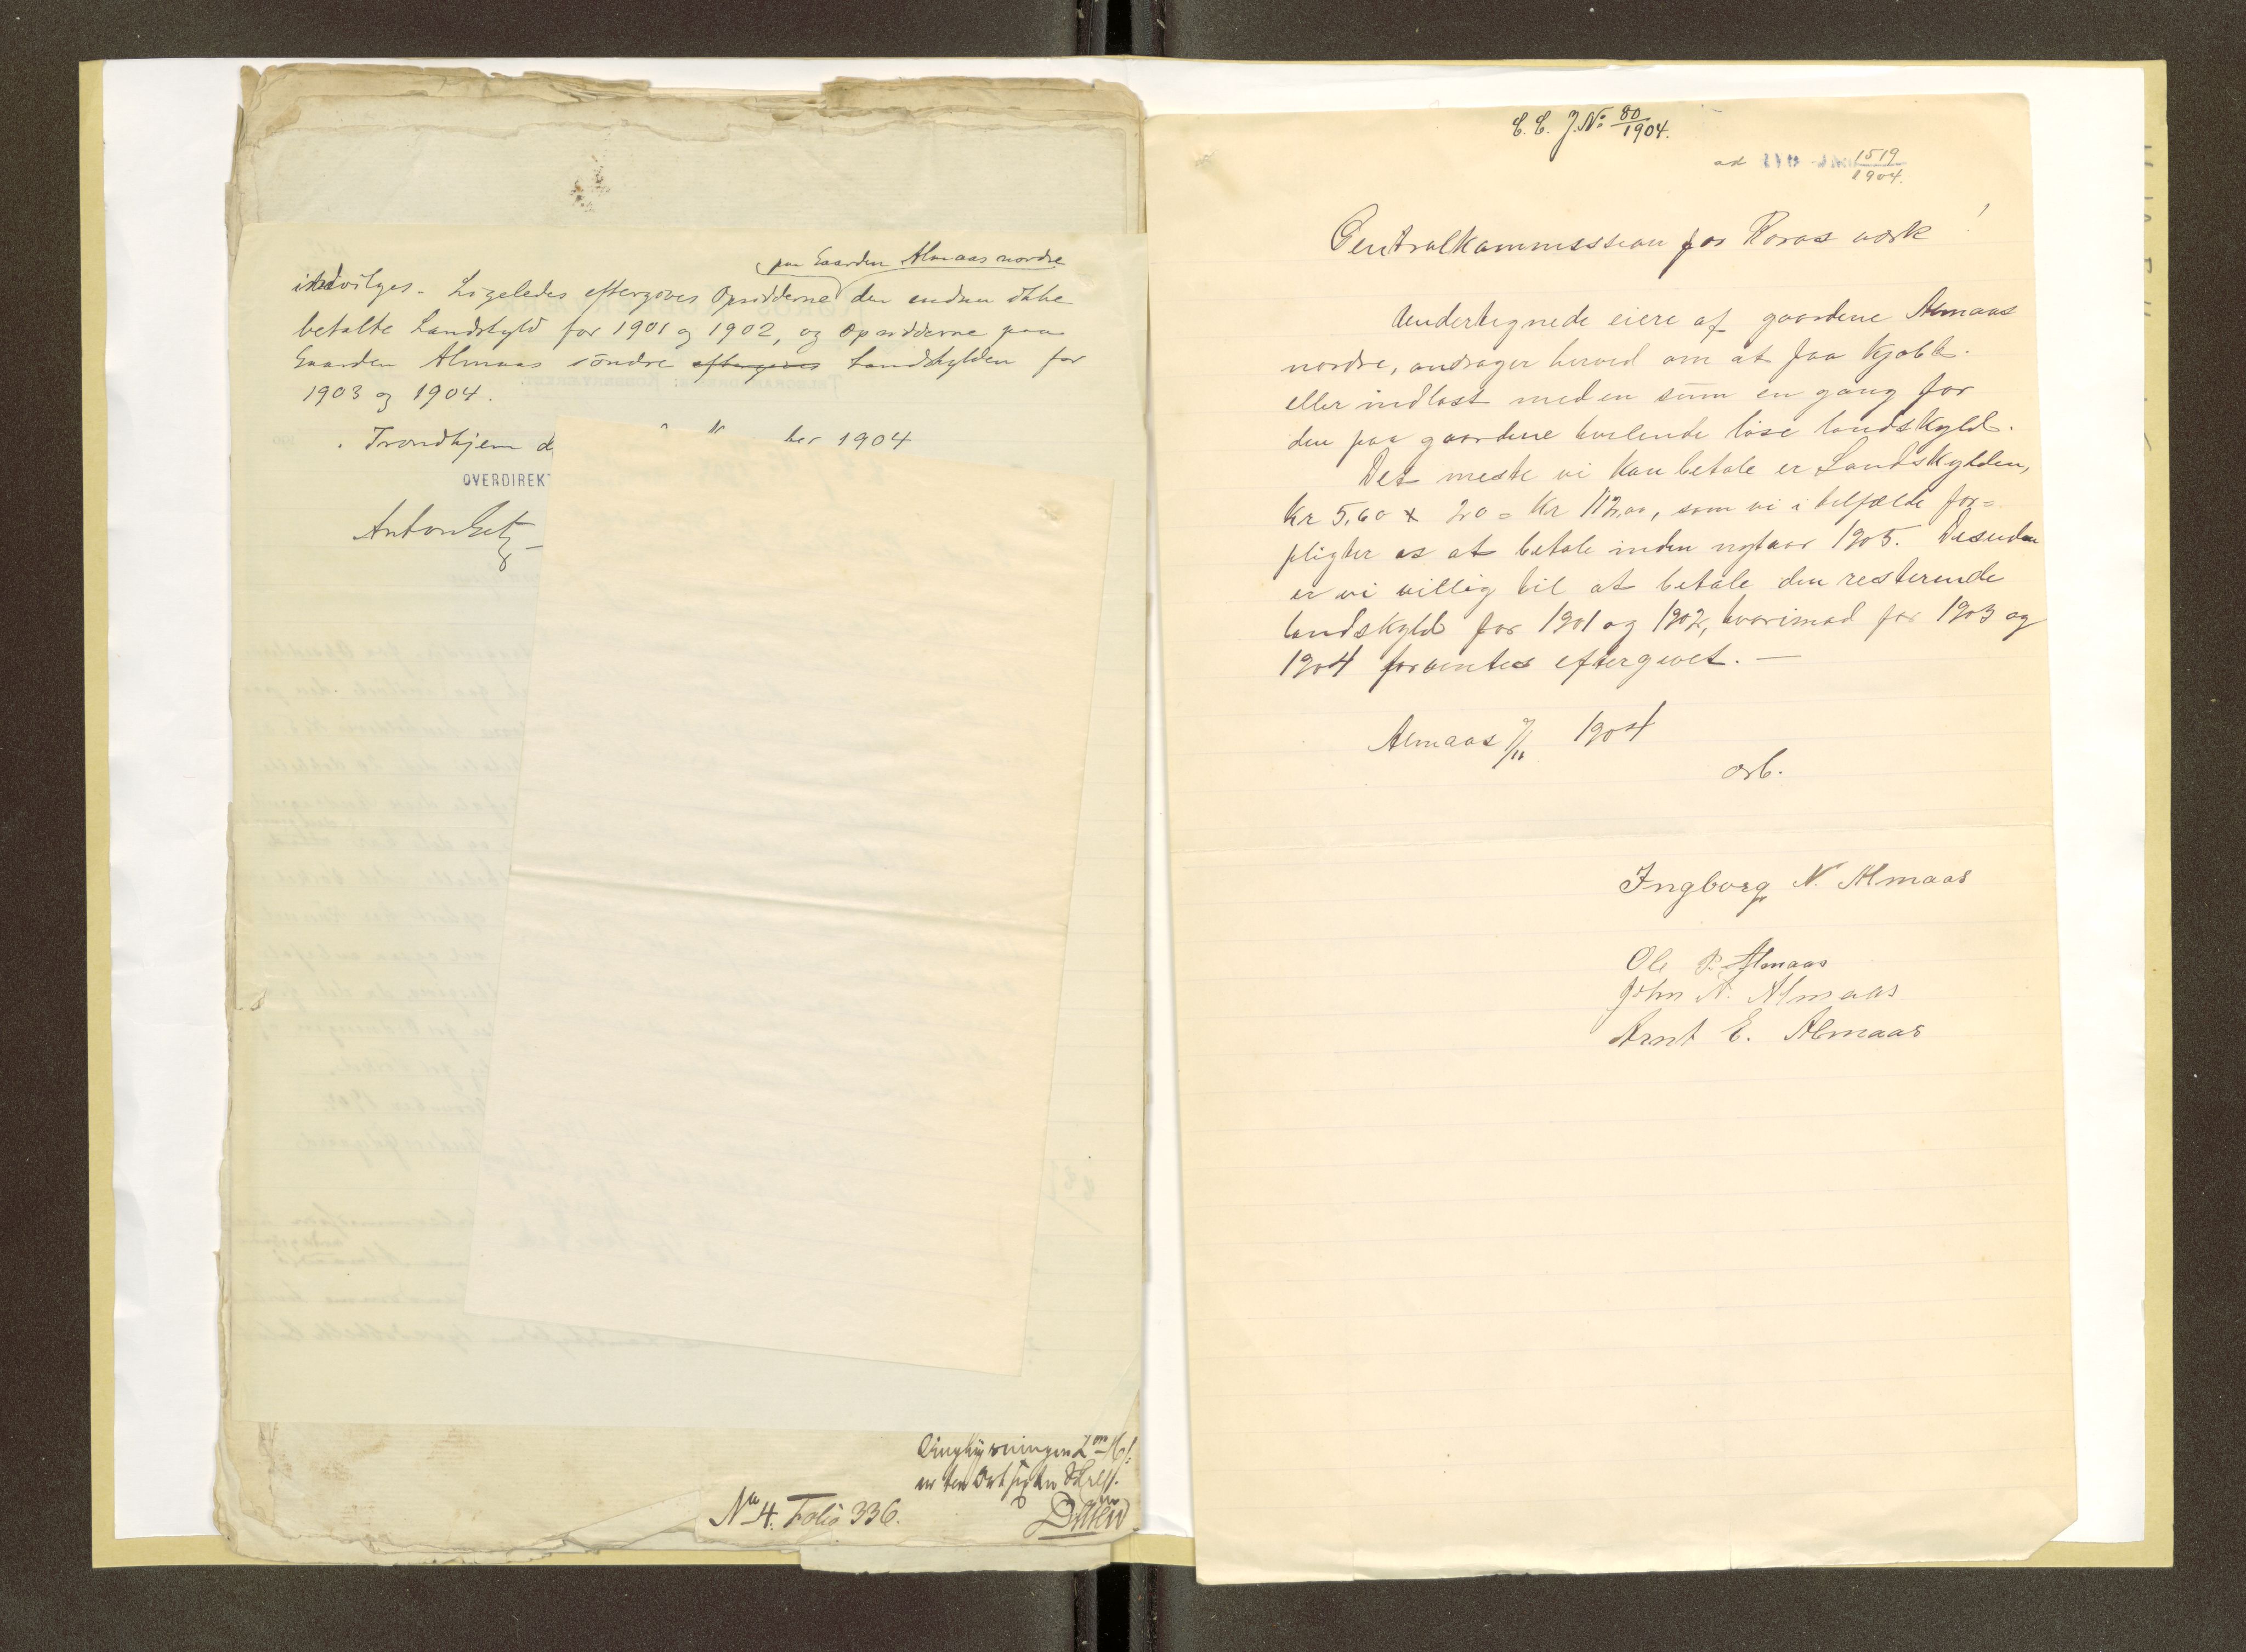 paa Gaarden Almaas nordre
indvilges. Ligeledes eftergives Opsidderne den endnu ikke
betalte Landskyld for 1901 og 1902, og Opsidderne paa
Gaarden Almaas söndre eftergives Landskylden for
1903 og 1904.
Trondhjem d
ber 1904
OVERDIREKT
Anton Getz
No 4. Folio 336.
C. C. J. No 80/1904.
ad
1519/1904.
Centralkommission for Røros værk!
Undertegnede eiere af gaardene Almaas
nordre, andrager herved om at faa kjøbt
eller indløst med en sum en gang for
den paa gaardene hvilende löse landskyld.
Det meste vi kan betale er Landskylden,
kr 5,60 x 20 = kr 112,00, som vi i tilfælde for=
pligter os at betale inden nytaar 1905. Desuden
er vi villig til at betale den resterende
landskyld for 1901 og 1902, hvorimod for 1903 og
1904 forventes eftergivet. —
Almaas 7/11 1904
ærb.
Ingborg N. Almaas
Ole P. Almaas
John N. Almaas
Arnt E. Almaas